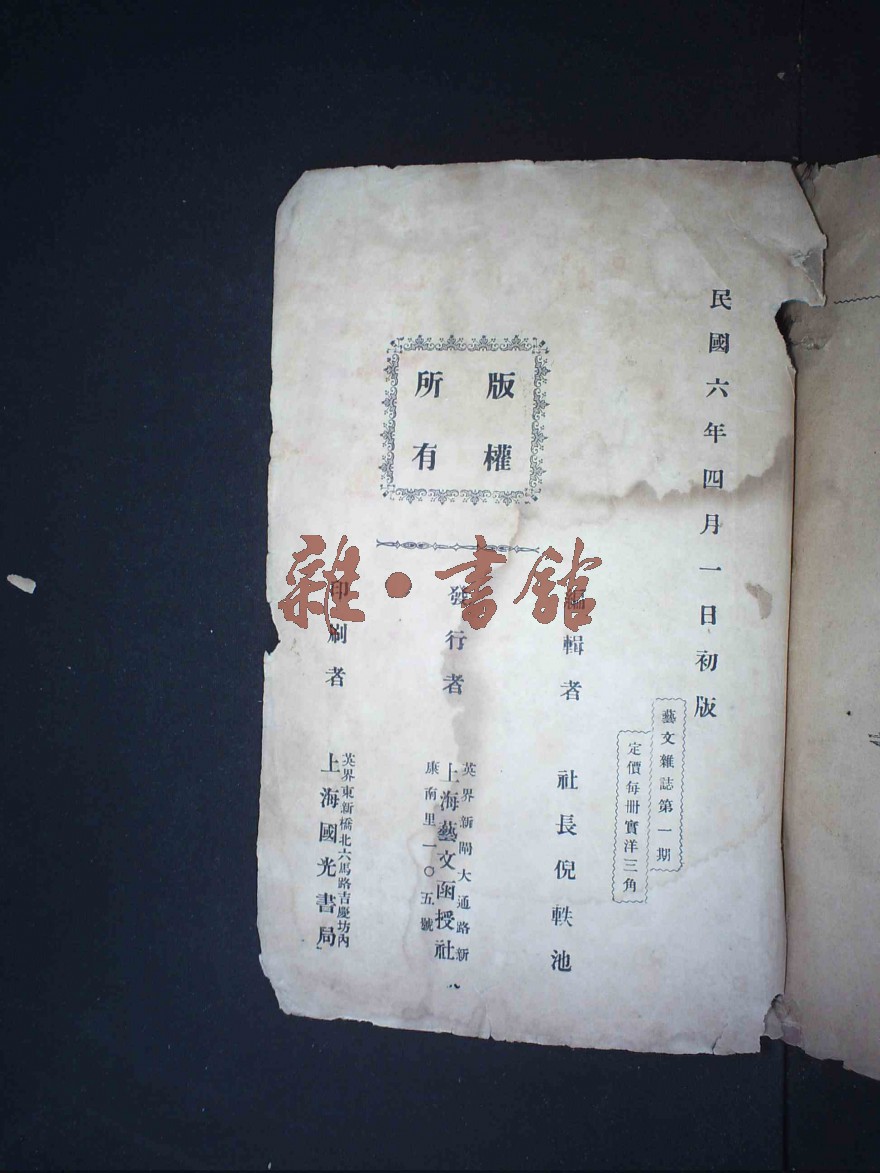 民國六年四月一日初版
藝文雜誌第一期
定價每冊實洋三角
版權
所有
編輯者 社長倪軼池
發行者 英界新閘大通路新
康南里一〇五號
上海藝文函授社
印刷者 英界東新橋北六馬路吉慶坊內
上海國光書局
雜·書館